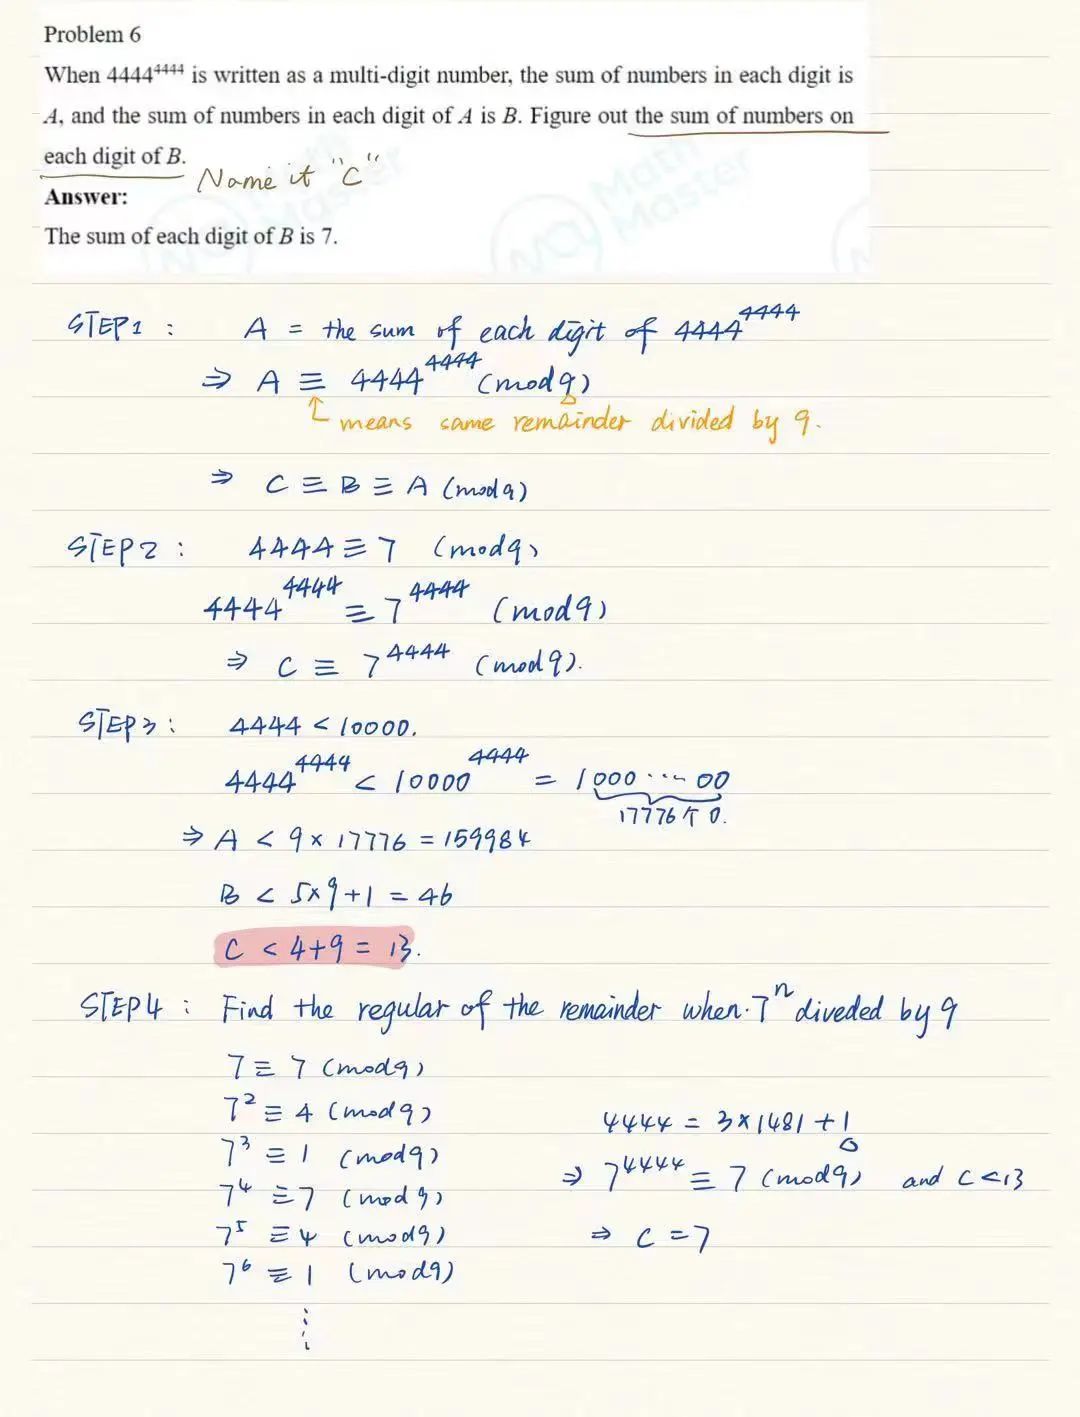 Problem 6
When 4444⁴⁴⁴⁴ is written as a multi-digit number, the sum of numbers in each digit is
A, and the sum of numbers in each digit of A is B. Figure out the sum of numbers on
each digit of B.
Name it "C"
Answer:
The sum of each digit of B is 7.
Math Master
STEP1 : A = the sum of each digit of 4444⁴⁴⁴⁴
⇒ A ≡ 4444⁴⁴⁴⁴ (mod9)
↑ means same remainder divided by 9.
⇒ C ≡ B ≡ A (mod9)
STEP2 : 4444 ≡ 7 (mod9)
4444⁴⁴⁴⁴ ≡ 7⁴⁴⁴⁴ (mod9)
⇒ C ≡ 7⁴⁴⁴⁴ (mod9).
STEP3 : 4444 < 10000.
4444⁴⁴⁴⁴ < 10000⁴⁴⁴⁴ = 1000···00
17776个0.
⇒ A < 9×17776 = 159984
B < 5×9+1 = 46
C < 4+9 = 13.
STEP4 : Find the regular of the remainder when 7ⁿ diveded by 9
7 ≡ 7 (mod9)
7² ≡ 4 (mod9)
7³ ≡ 1 (mod9)
7⁴ ≡ 7 (mod9)
7⁵ ≡ 4 (mod9)
7⁶ ≡ 1 (mod9)
⋮
4444 = 3×1481+1
⇒ 7⁴⁴⁴⁴ ≡ 7 (mod9) and C<13
⇒ C = 7